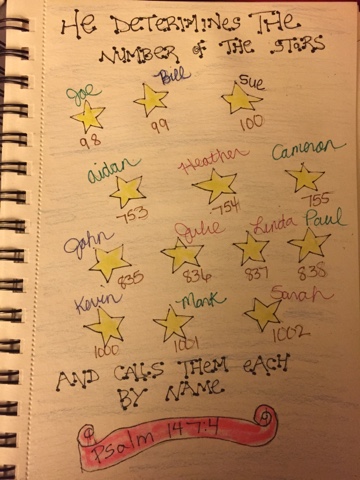 HE DETERMINES THE
NUMBER OF THE STARS
Joe Bill Sue
98 99 100
Aidan Heather Cameron
753 754 755
John Julie Linda Paul
835 836 837 838
Kevin Mark Sarah
1000 1001 1002
AND CALLS THEM EACH
BY NAME
Psalm 147:4